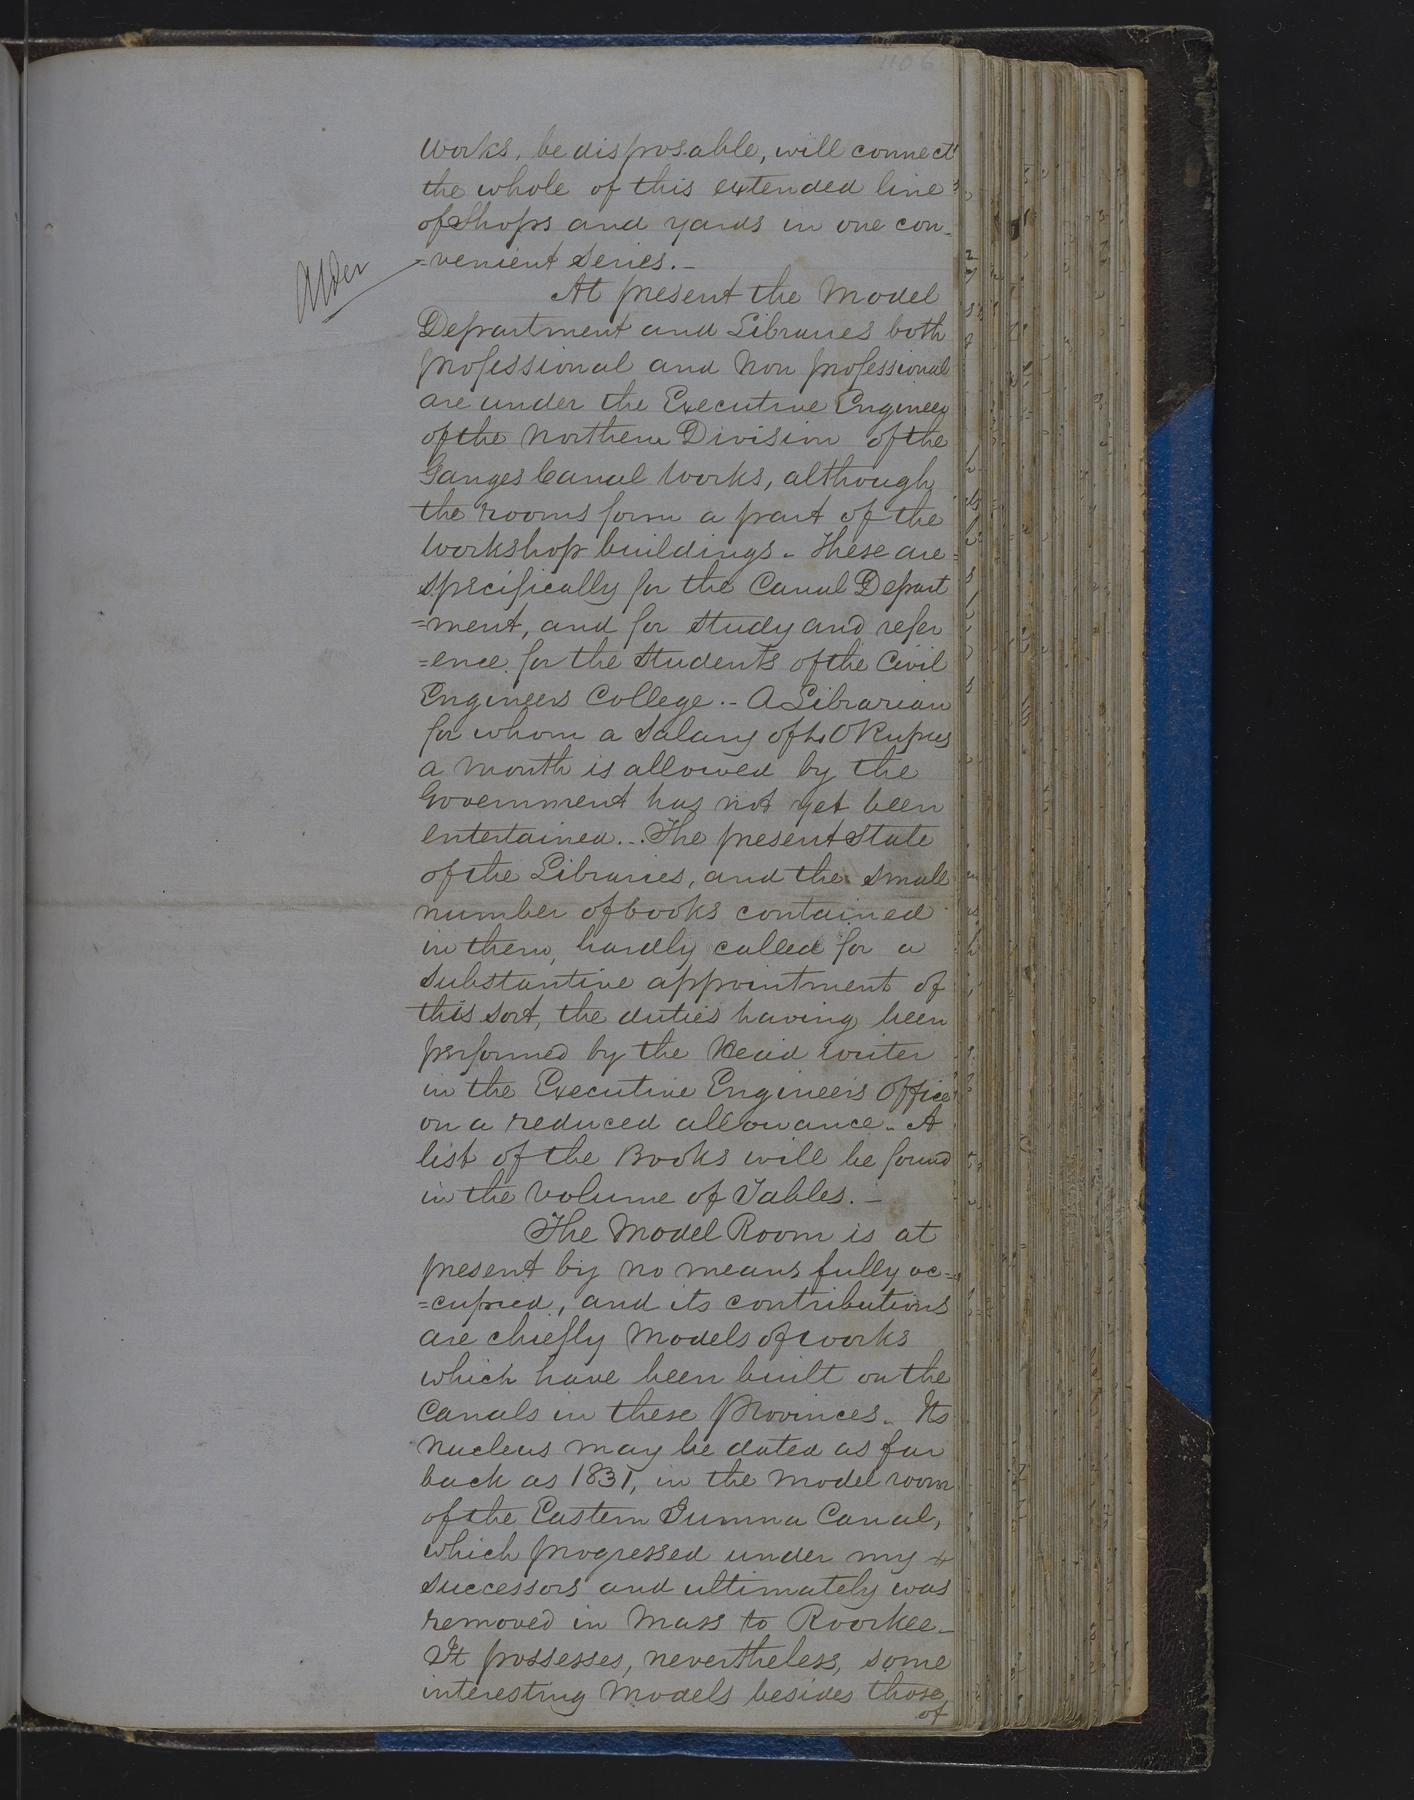 1106
works, be disposable, will connect
the whole of this extended line
of Shops and yards in one con-
=venient Series.-
Alder
At present the Model
Department and Libraries both
professional and Non professional
are under the Executive Engineer
of the Northern Division of the
Ganges Canal Works, although
the rooms form a part of the
Workshop buildings. These are
specifically for the Canal Depart
=ment, and for study and refer
=ence for the Students of the Civil
Engineers College.- A Librarian
for whom a Salary of Rupees
a Month is allowed by the
Government has not yet been
entertained... The present State
of the Libraries, and the small
number of books contained
in them, hardly called for a
substantive appointment of
this sort, the duties having been
performed by the Head writer
in the Executive Engineers Office
on a reduced allowance. A
list of the Books will be found
in the Volume of Tables.-
The Model Room is at
present by no means fully oc=
=cupied, and its contributions
are chiefly Models of works
which have been built on the
Canals in these Provinces. Its
Nucleus may be dated as far
back as 1831, in the Model room
of the Eastern Jumna Canal,
which progressed under my
successors and ultimately was
removed in Mass to Roorkee.-
It possesses, nevertheless, some
interesting Models besides those
of